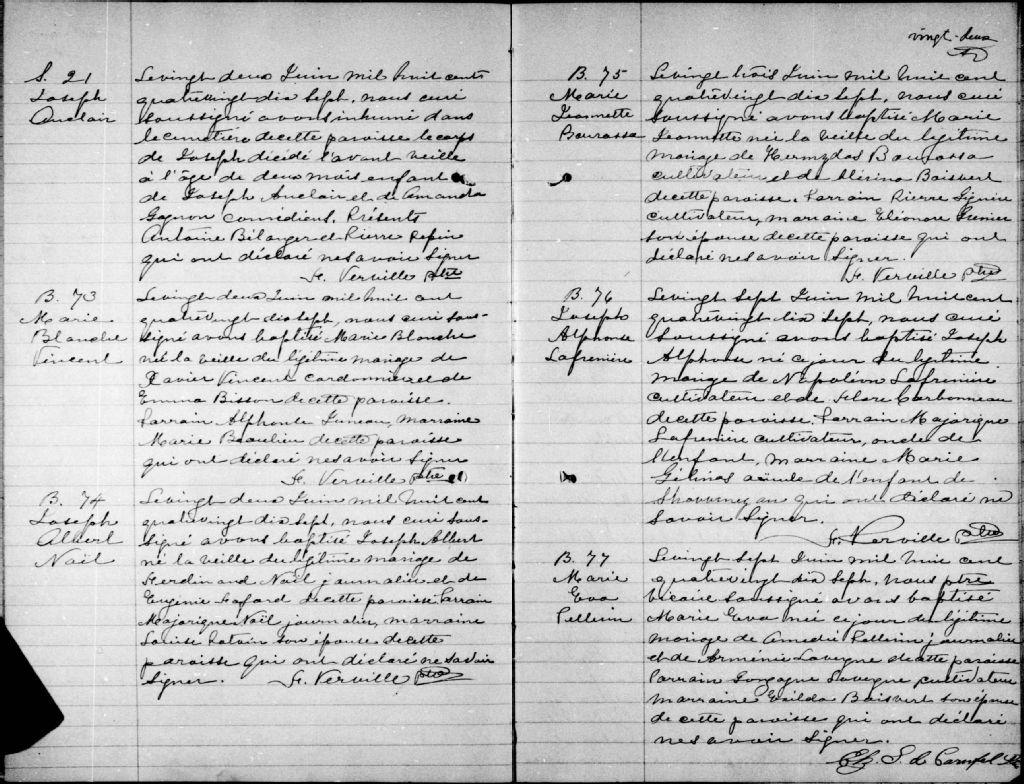 S. 21
Joseph
Auclair
Levingt deux Juin mil huit cents
quatrevingt dix sept, nous curé
soussigné avons inhumé dans
le cimetière decette paroisse le corps
de Joseph décédé l'avant veille
à l'âge de deux mois enfant
de Joseph Auclair et de Amanda
Gagnon comédiens. Présents
Antoine Bélanger et Pierre Pepin
qui ont déclaré nesavoir signer
H. Verville ptre
B. 73
Marie
Blanche
Vincent
Levingt deux Juin mil huit cent
quatrevingt dix sept, nous curé sous-
signé avons baptisé Marie Blanche
né la veille du légitime mariage de
Xavier Vincent cordonnier et de
Emma Bisson decette paroisse.
Parrain Alphonse Juneau, marraine
Marie Beaulieu decette paroisse
qui ont déclaré nesavoir signer
H. Verville ptre
B. 74
Joseph
Albert
Noël
Levingt deux Juin mil huit cent
quatrevingt dix sept, nous curé sous-
signé avons baptisé Joseph Albert
né la veille du légitime mariage de
Ferdinand Noël journalier et de
Eugénie Lafard decette paroisse. Parrain
Majorique Noël journalier, marraine
Louise son épouse decette
paroisse qui ont déclaré nesavoir
signer. H. Verville ptre
vingt-deux
B. 75
Marie
Jeannette
Bourassa
Levingt trois Juin mil huit cent
quatrevingt dix sept, nous curé
soussigné avons baptisé Marie
Jeannette née la veille du légitime
mariage de Hermydas Bourassa
cultivateur et de Alexina Boisvert
decette paroisse. Parrain Pierre
cultivateur, marraine Eléonore Grenier
son épouse decette paroisse qui ont
déclaré nesavoir signer.
H. Verville ptre
B. 76
Joseph
Alphonse
Lafrenière
Levingt sept Juin mil huit cent
quatrevingt dix sept, nous curé
soussigné avons baptisé Joseph
Alphonse né cejour du légitime
mariage de Napoléon Lafrenière
cultivateur et de Flore Carbonneau
decette paroisse. Parrain Majorique
Lafrenière cultivateur, oncle de
l'enfant, marraine Marie
Gélinas aïeule de l'enfant de
Shawinigan qui ont déclaré ne
savoir signer.
H. Verville ptre
B. 77
Marie
Eva
Pellerin
Levingt sept Juin mil huit cent
quatrevingt dix sept, nous ptre
vicaire soussigné avons baptisé
Marie Eva née cejour du légitime
mariage de Amedée Pellerin journalier
et de Arménie Lavergne decette paroisse
Parrain Gonzague Lavergne cultivateur
marraine Exilda Boisvert son épouse
de cette paroisse qui ont déclaré
nesavoir signer.